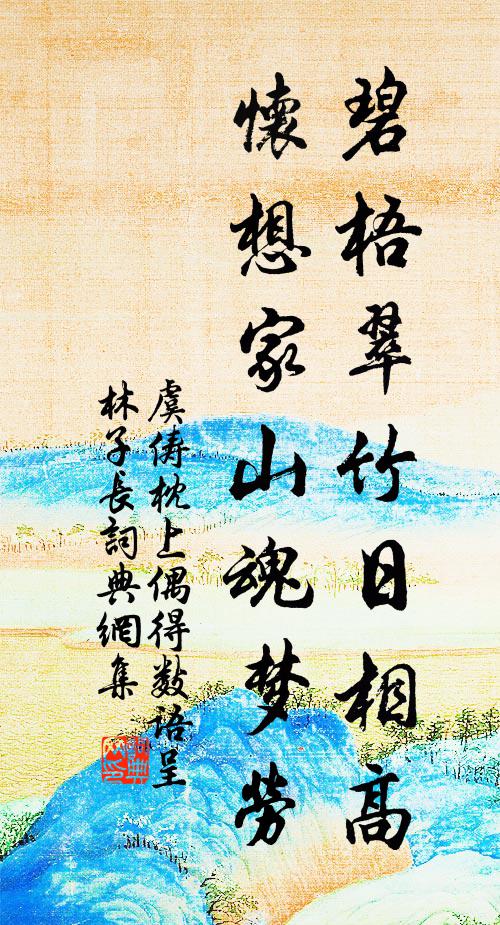 碧梧翠竹日相高
懷想家山魂梦勞
虞俦枕上偶得数语呈
林子長詞典網集